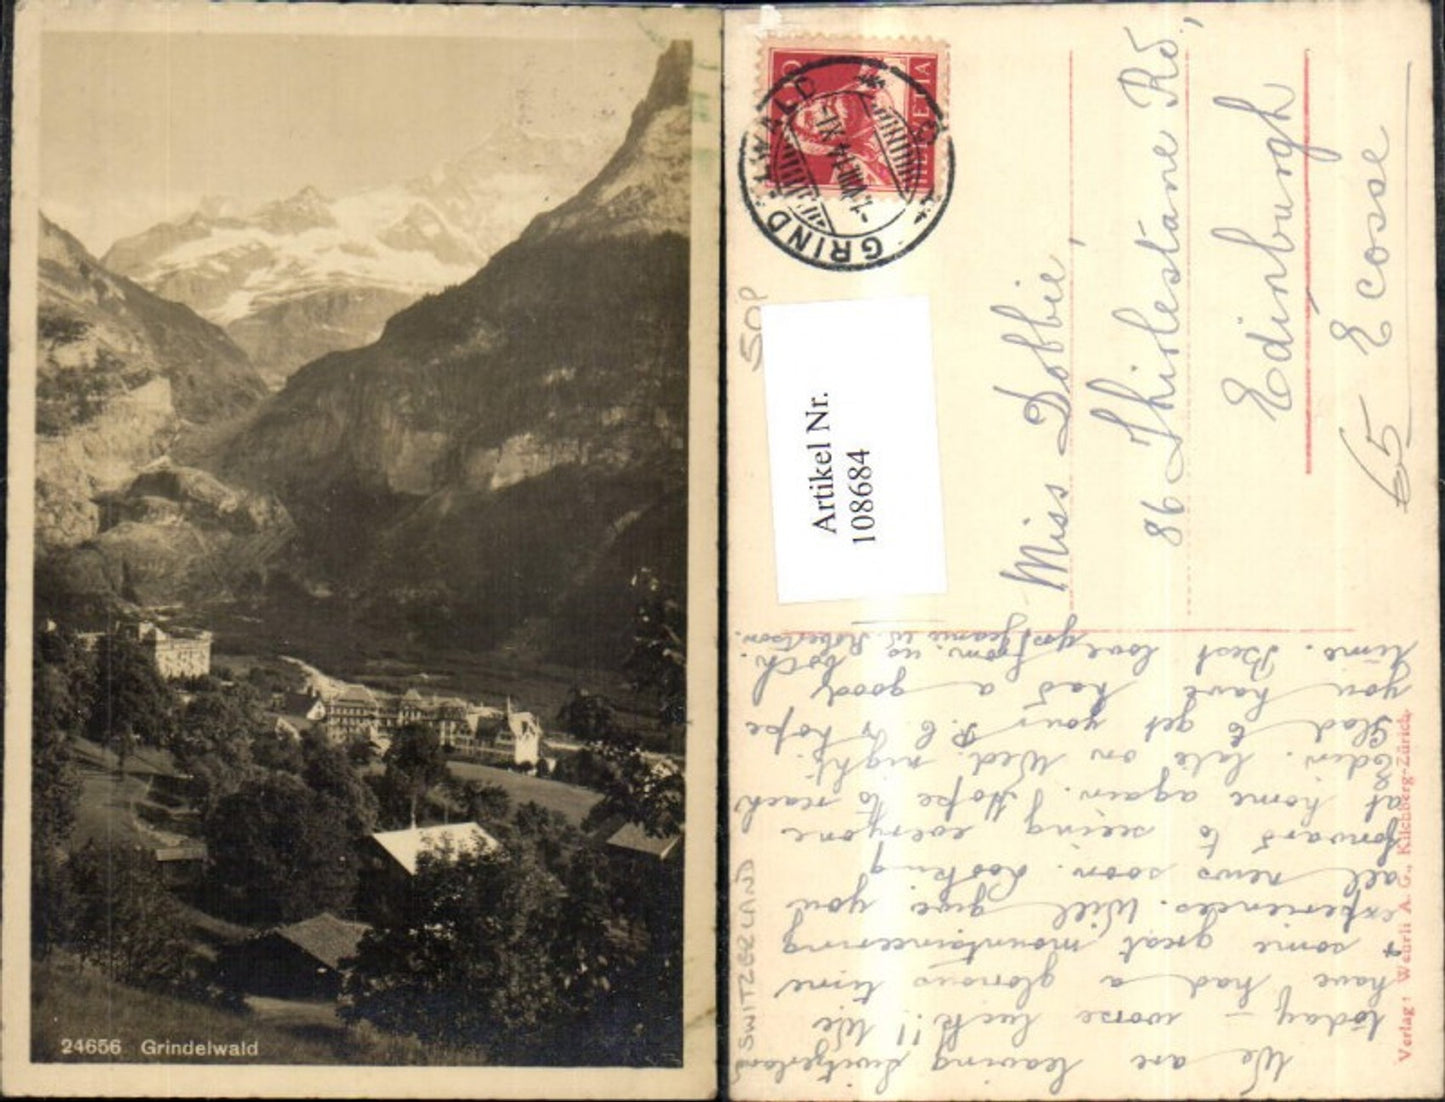 24656 Grindelwald
HELVETIA
GRINDELWALD
-1.VIII.14.XI-
SOP
Artikel Nr.
108684
Miss Dobbie,
86 Thirlestane Rd.,
Edinburgh
Ecosse
65
SWITZERLAND
We are leaving Switzerland
today – worse luck!! We
have had a glorious time
+ some great mountaineering
experiences. Will give you
all news soon. Looking
forward to seeing everyone
at home again. Hope to reach
Edin. late on Wed. night.
Glad to get your P.C. & hope
you have had a good
time. Best love from us both.
Yrs Jeanie W. Robertson.
Verlag: Wehrli A. G., Kilchberg-Zürich